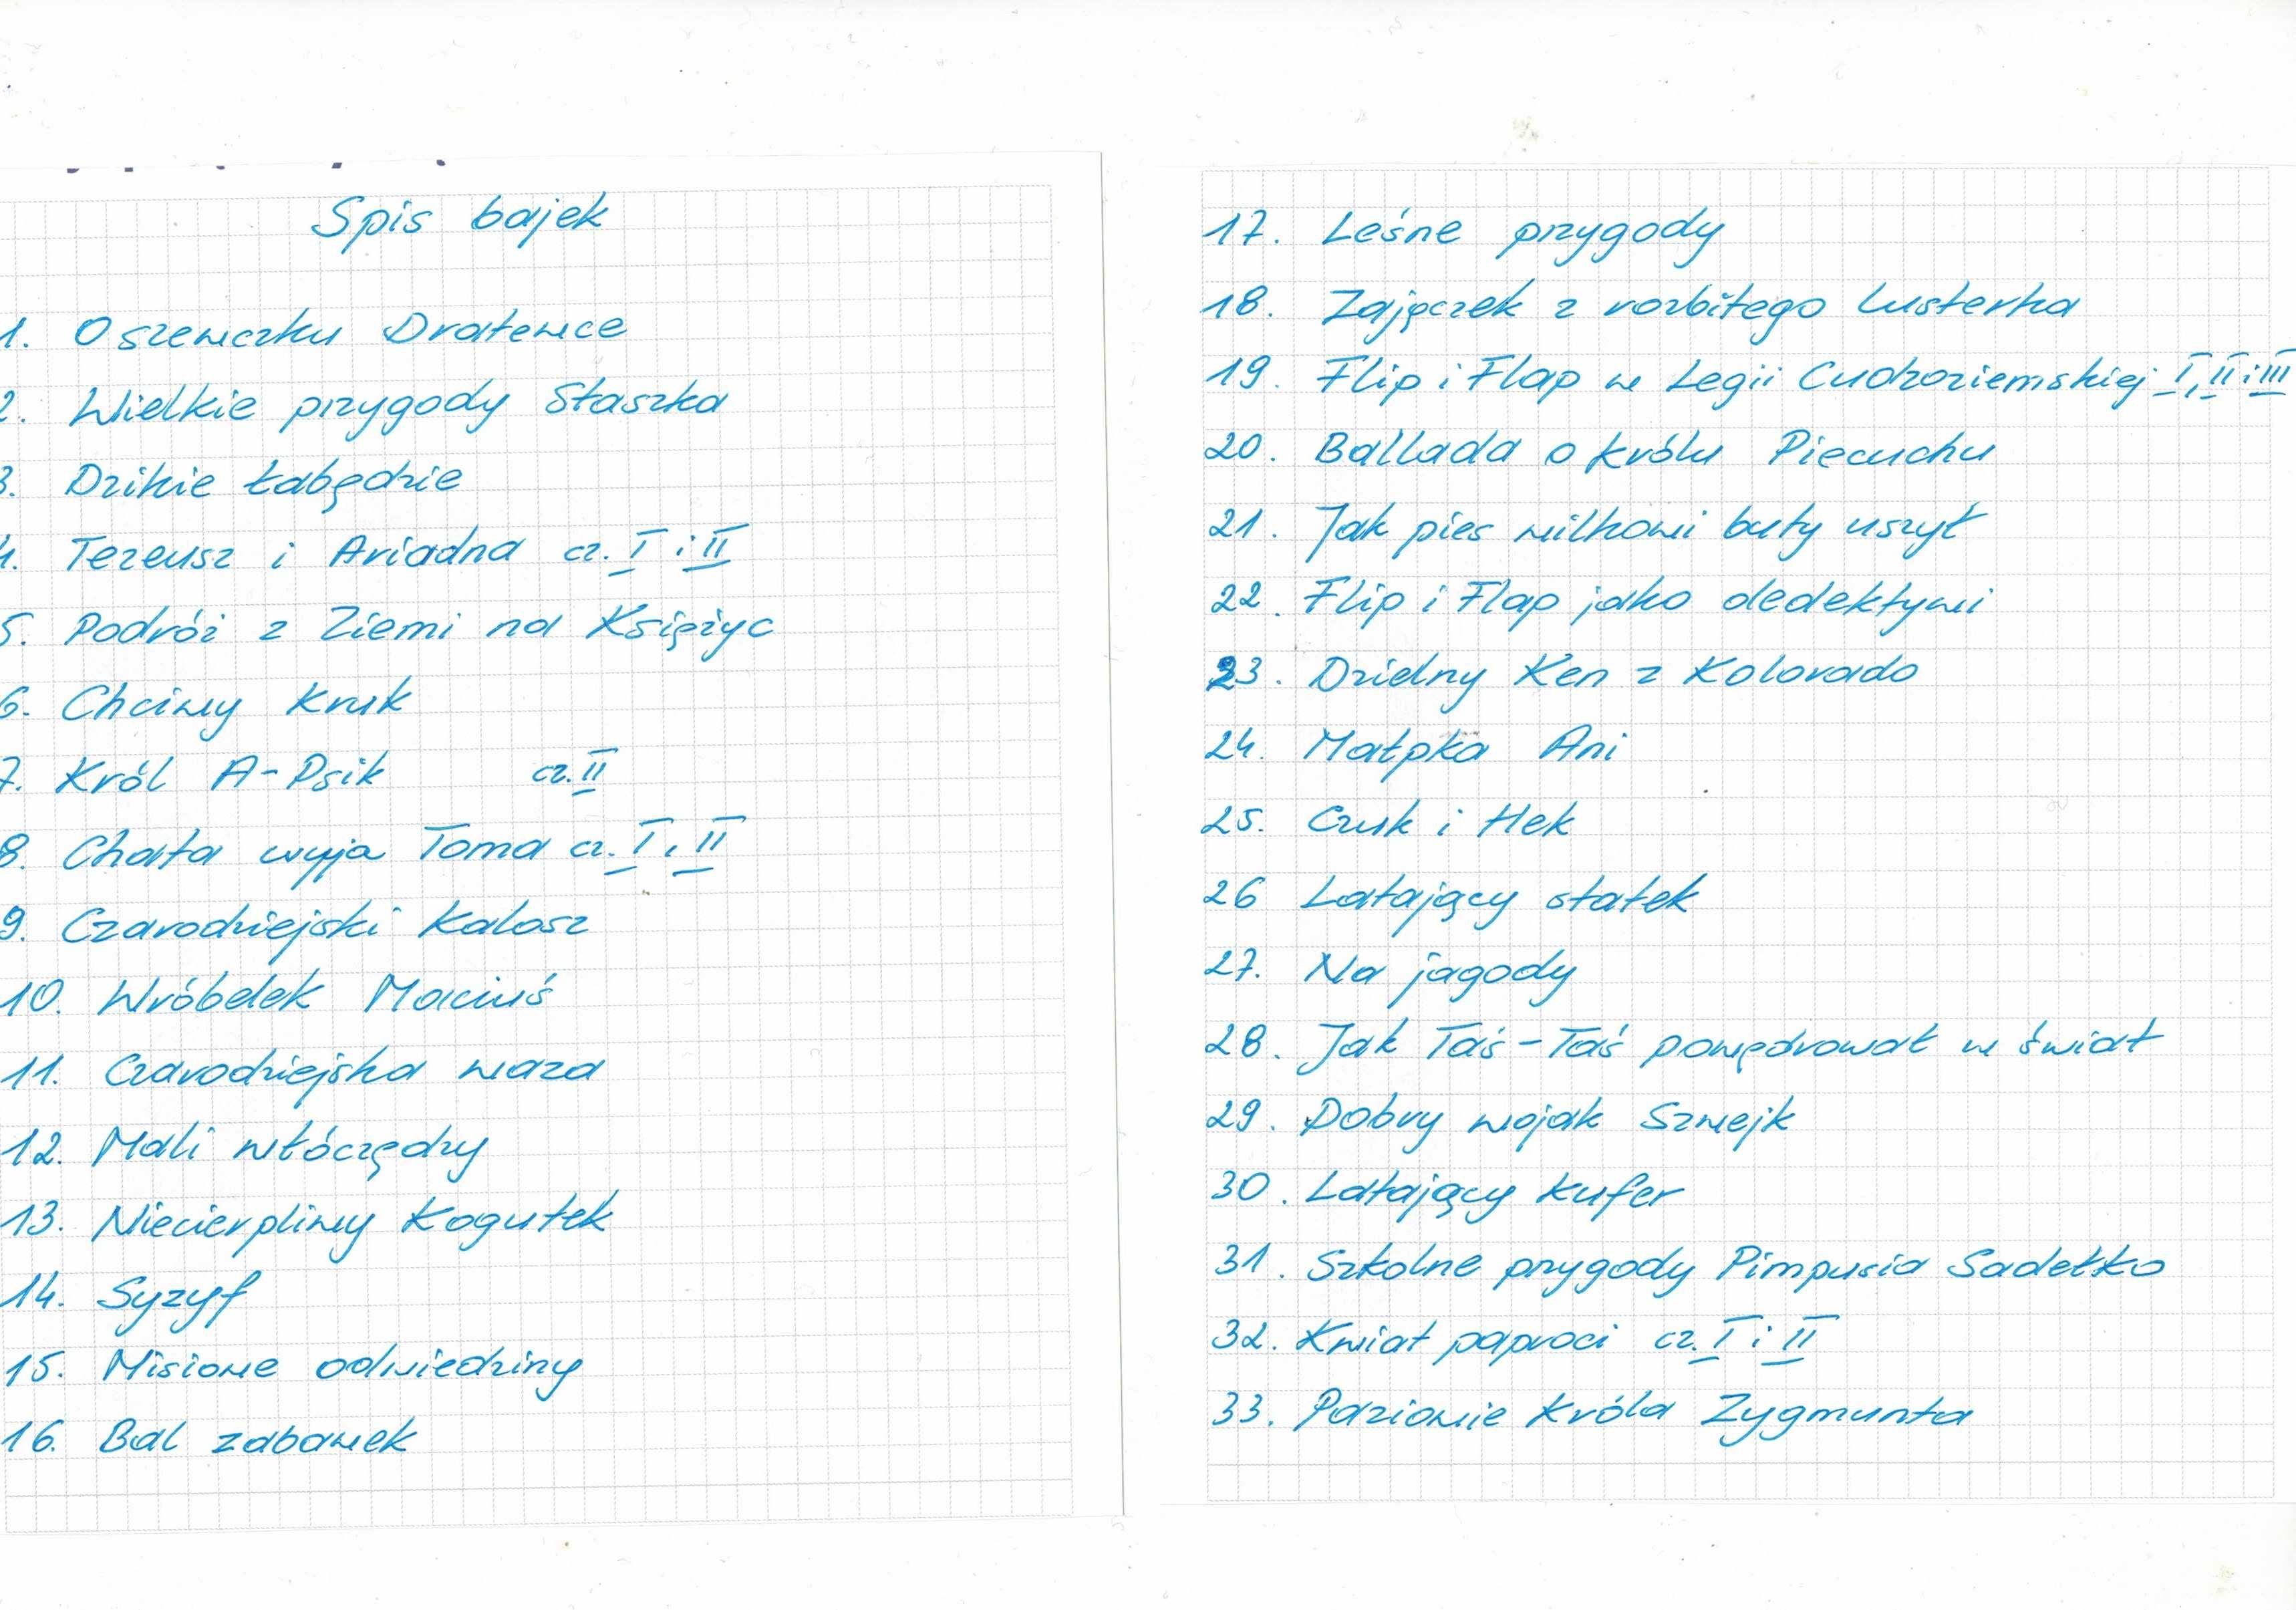 Spis bajek
1. O szewczku Dratewce
2. Wielkie przygody Staszka
3. Dzikie Łabędzie
4. Tezeusz i Ariadna cz. I i II
5. Podróż z Ziemi na Księżyc
6. Chciwy Kruk
7. Król A-Psik cz. II
8. Chata wyja Toma cz. I i II
9. Czarodziejski Kalosz
10. Wróbelek Maciuś
11. Czarodziejska waza
12. Mali włóczędzy
13. Niecierpliwy Kogutek
14. Syzyf
15. Misiowe odwiedziny
16. Bal zabawek
17. Leśne przygody
18. Zajączek z rozbitego lusterka
19. Flip i Flap w Legii Cudzoziemskiej I, II i III
20. Ballada o królu Piecuchu
21. Jak pies wilkowi buty uszył
22. Flip i Flap jako dedektywi
23. Dzielny Ken z Kolorado
24. Małpka Ani
25. Czuk i Hek
26 Latający statek
27. Na jagody
28. Jak Taś-Taś powędrował w świat
29. Dobry wojak Szwejk
30. Latający kufer
31. Szkolne przygody Pimpusia Sadełko
32. Kwiat paproci cz. I i II
33. Paziowie Króla Zygmunta